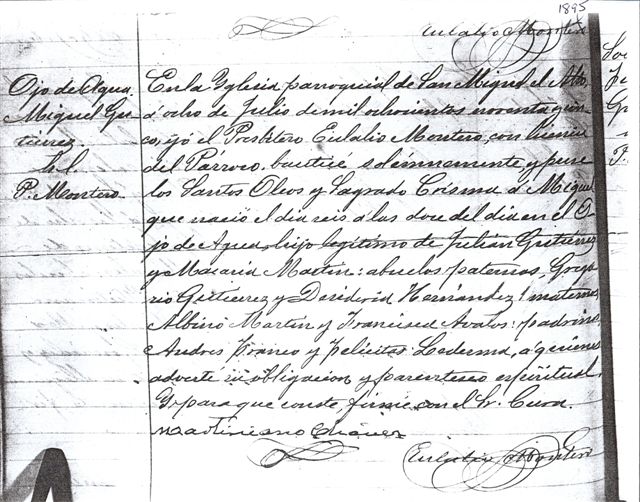 1895
Eulalio Montero
Ojo de Agua.
Miguel Gu-
tierrez.
h. l.
P. Montero
En la Yglesia parroquial de San Miguel el Alto,
á ocho de Julio de mil ochocientos noventa y cin-
co, yó el Presbítero Eulalio Montero, con licencia
del Párroco, bauticé solemnemente y puse
los Santos Oleos y Sagrado Crisma á Miguel
que nació el dia seis a las doce del dia en el O-
jo de Agua, hijo legítimo de Julián Gutiérrez
y Macaria Martin: abuelos paternos, Grego-
rio Gutierrez y Desideria Hernández: maternos,
Albino Martin y Francisca Avalos: padrinos
Andres Franco y Felicitas Ledesma, á quienes
advertí su obligacion y parentesco espiritual.
Y para que conste firmé con el Sr. Cura.
Martiniano Chávez
Eulalio Montero